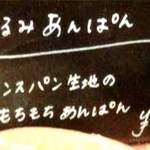 るみあんぱん
ンスパン生地の
もちもちあんぱん